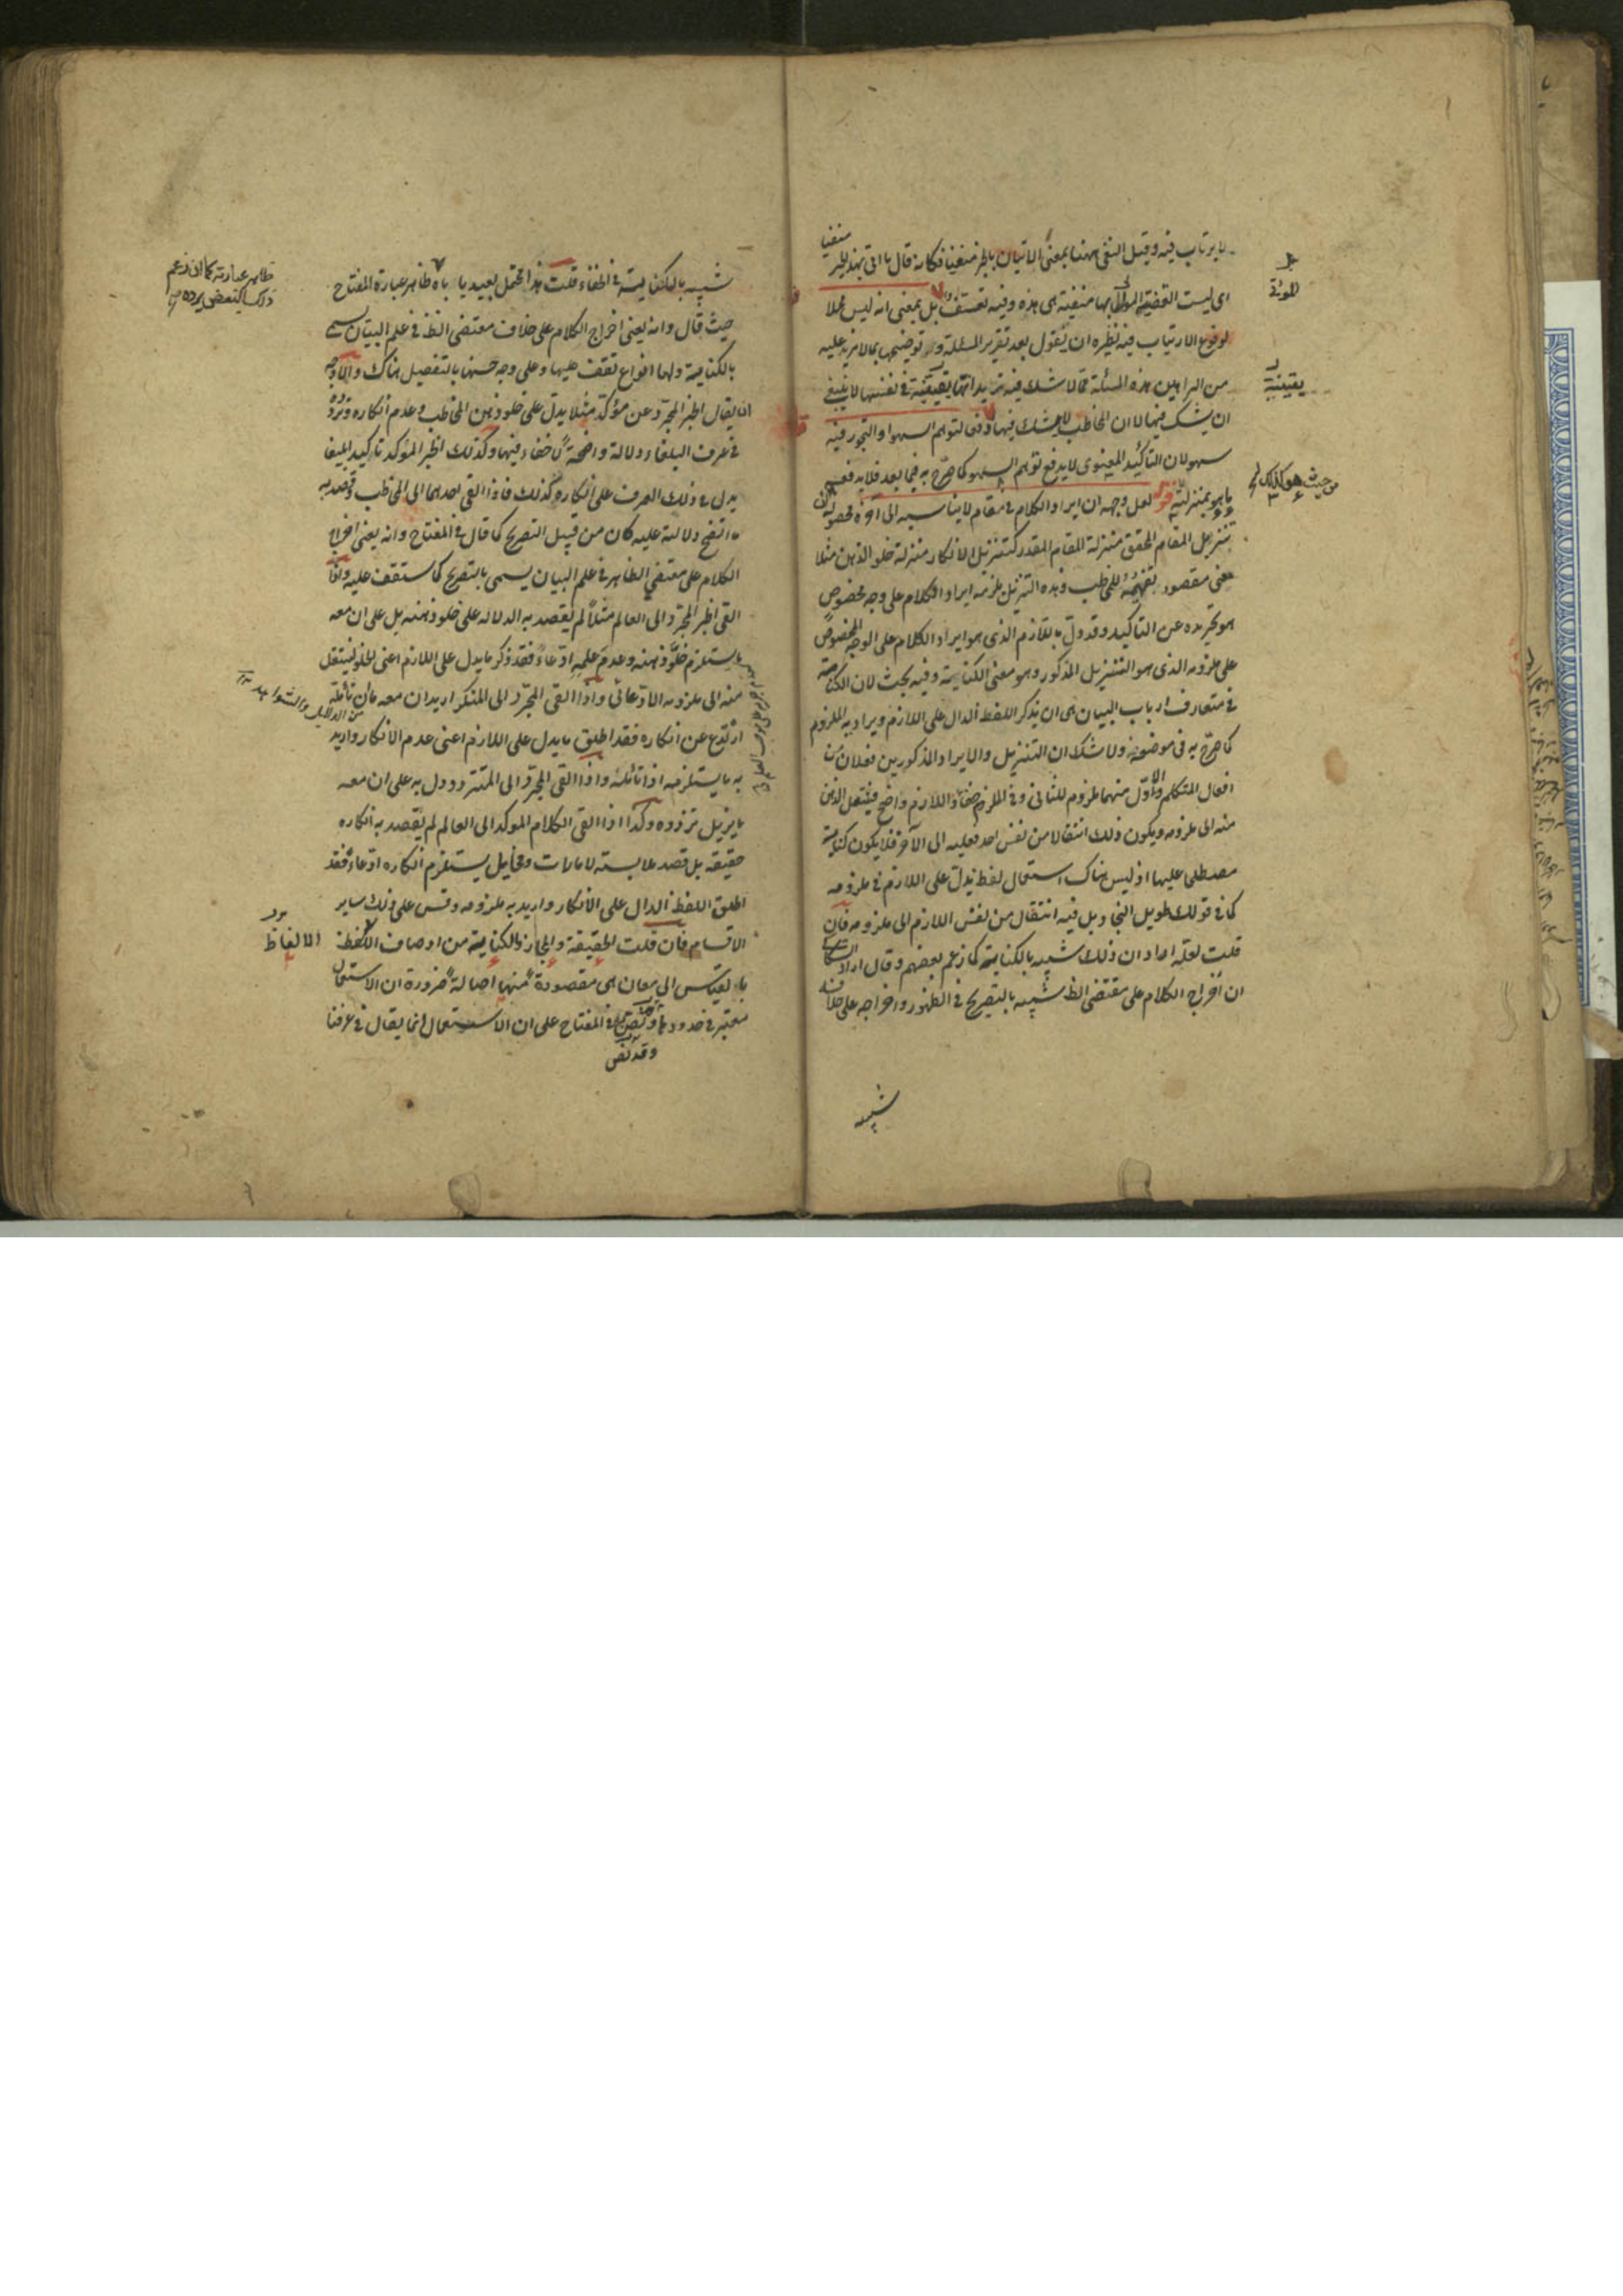 لا يرتاب فيه وقيل النفى ههنا بمعنى الاتيان بالخبر منفيا فكانه قال ما اتى بهذا الخبر منفيا
اى ليست القضية المؤتى بها منفية هى هذه وفيه تعسف بل بمعنى انه ليس محلا
لوقوع الارتياب فيه نظيره ان يقول بعد تقرير المسئلة و توضيحها بما لا مزيد عليه
من البراهين هذه المسألة مما لا شك فيه تريد انها يقينية فى نفسها لا ينبغى
ان يشك فيها لا ان المخاطب لا يشك فيها لدفع توهم السهو او التجوز فيه
سهو لان التأكيد المعنوى لا يدفع توهم السهو كما صرح به فيما بعد فلا يدفعه
ما هو بمنزلته قوله لعل وجهه ان ايراد الكلام فى مقام لا يناسبه الى آخره محصوله ان
تنزيل المقام المحقق منزلة المقام المقدر كتنزيل الانكار منزلة خلو الذهن مثلا
معنى مقصود تفهيمه للمخاطب وهذه التنزيل يلزمه ايراد الكلام على وجه مخصوص
هو تجريده عن التأكيد وقد دل باللازم الذى هو ايراد الكلام على الوجه المخصوص
على ملزومه الذى هو التنزيل المذكور وهو معنى الكناية وفيه بحث لان الكناية
فى متعارف ارباب البيان هى ان يذكر اللفظ الدال على اللازم ويراد به الملزوم
كما صرح به فى موضعه ولا شك ان التنزيل والايراد المذكورين فعلان من
افعال المتكلم والاول منهما ملزوم للثانى وفى الملزوم خفاء واللازم واضح فينتقل الذهن
منه الى ملزومه ويكون ذلك انتقالا من نفس احد فعليه الى الآخر فلا يكون كناية
مصطلحا عليها اذ ليس هناك استعمال لفظ يدل على اللازم فى ملزومه
كما فى قولك طويل النجاد بل فيه انتقال من نفس اللازم الى ملزومه فان
قلت لعله اراد ان ذلك شبيه بالكناية كما زعم بعضهم وقال اراد السكاكى
ان اخراج الكلام على مقتضى الظ شبيه بالتصريح فى الظهور واخراجه على خلافه
شبيه
للمؤتى
يقينية
من حيث هو كذلك
شبيه بالكناية فى الخفاء قلت هذا محتمل بعيد يأباه ظاهر عبارة المفتاح
حيث قال وانه يعنى اخراج الكلام على خلاف مقتضى الظ فى علم البيان يسمى
بالكناية ولها انواع تقف عليها وعلى وجه حسنها بالتفصيل هناك والاوجه
ان يقال الخبر المجرد عن مؤكد مثلا يدل على خلو ذهن المخاطب وعدم انكاره وتردده
فى عرف البلغاء دلالة واضحة لا خفاء فيها وكذلك الخبر المؤكد تأكيدا بليغا
يدل فى ذلك العرف على انكاره كذلك فاذا القى احدهما الى المخاطب وقصد به
ما اتضح دلالته عليه كان من قبيل التصريح كما قال فى المفتاح وانه يعنى اخراج
الكلام على مقتضى الظاهر فى علم البيان يسمى بالتصريح كما ستقف عليه واذا
القى الخبر المجرد الى العالم مثلا لم يقصد به الدلالة على خلو ذهنه بل على ان معه
ما يستلزم خلو ذهنه وعدم علمه ادعاء فقد ذكر ما يدل على اللازم اعنى الخلو لينتقل
منه الى ملزومه الادعائى واذا القى المجرد الى المنكر اريد ان معه ما ان تأمله
ارتدع عن انكاره فقد اطلق ما يدل على اللازم اعنى عدم الانكار واريد
به ما يستلزمه اذا تأمله واذا القى المجرد الى المتردد دل به على ان معه
ما يزيل تردده وكذا اذا القى الكلام المؤكد الى العالم لم يقصد به انكاره
حقيقة بل قصد ملابسته لامارات ومخايل يستلزم انكاره ادعاء فقد
اطلق اللفظ الدال على الانكار واريد به ملزومه وقس على ذلك ساير
الاقسام فان قلت الحقيقة والمجاز والكناية من اوصاف اللفظ
بالقياس الى معان هى مقصودة منها اصالة ضرورة ان الاستعمال
معتبر فى حدودها وقد نص فى المفتاح على ان الاستعمال انما يقال فى عرفنا
وقد نص
ظاهر عبارته كما ان زعم
ذلك البعض يرده
من الدلايل والشواهد
الالفاظ